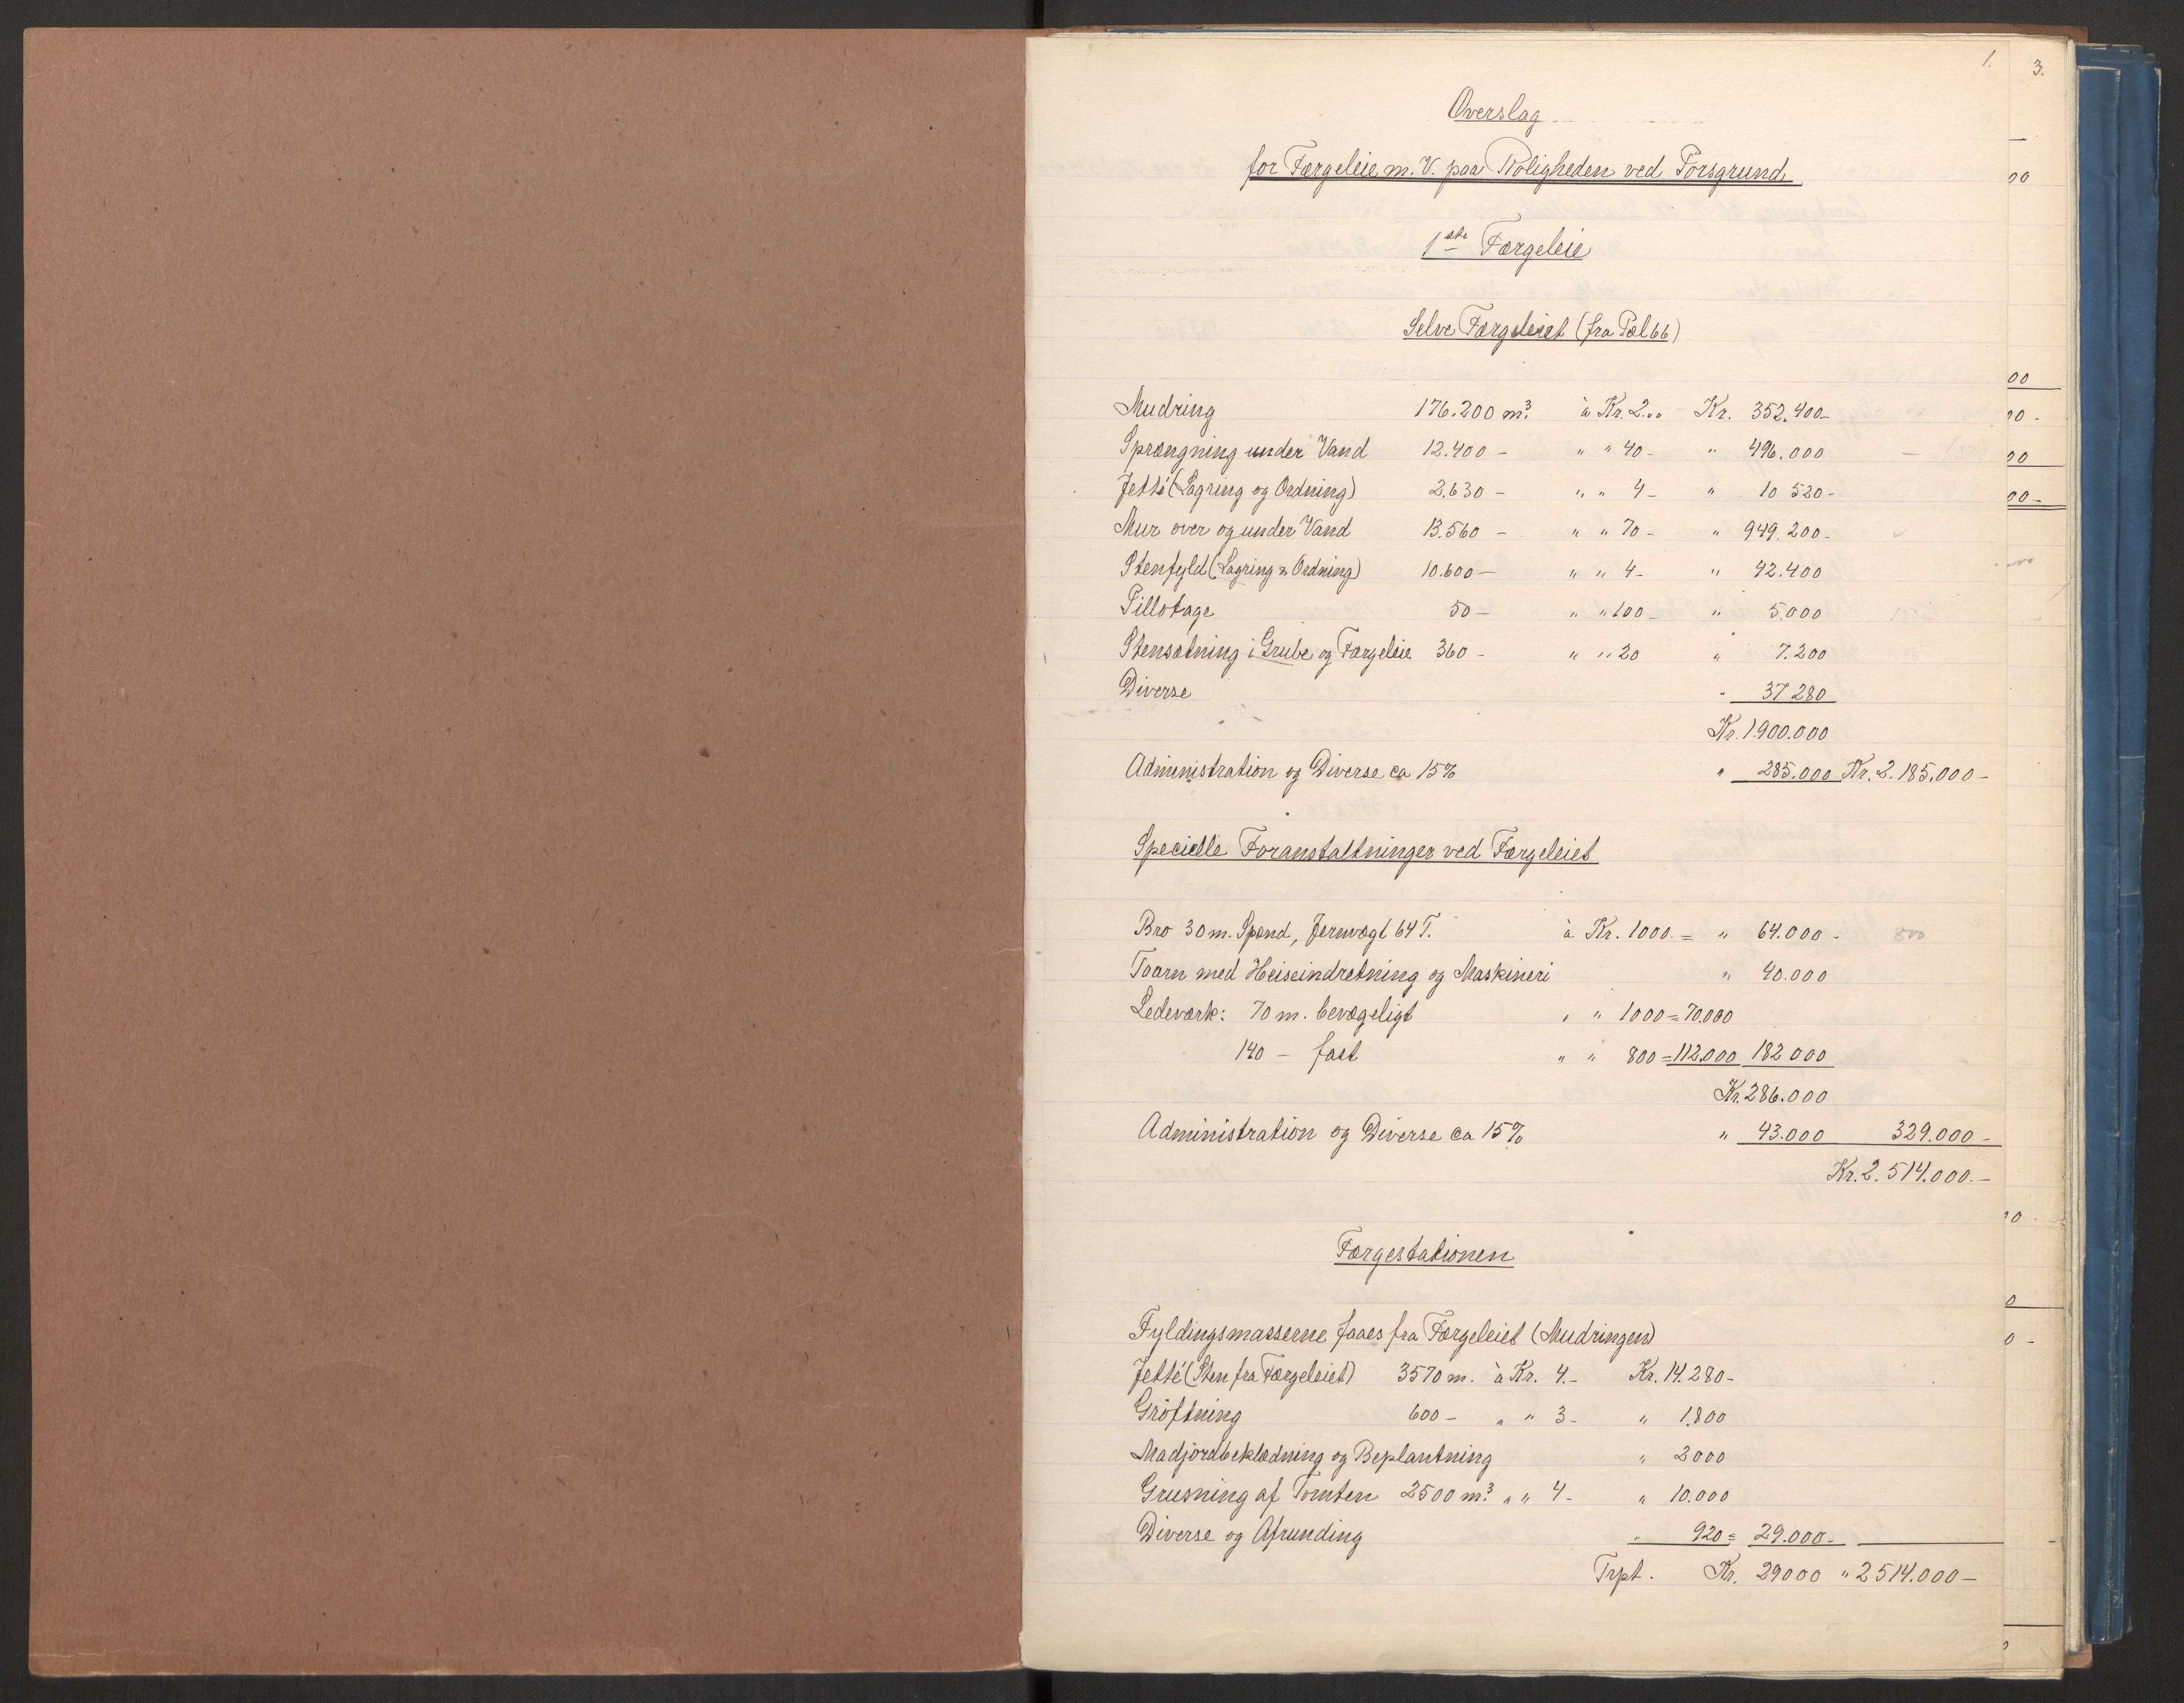 1.
3.
Overslag
for Færgeleie m. V. paa Roligheden ved Porsgrund
1ste Færgeleie
Selve Færgeleiet (fra Pæl 66)
Mudring 176.200 m³. à Kr. 2.00 Kr. 352.400-
Sprængning under Vand 12.400 - " " 40- " 496.000
Jetté (Lagring og Ordning) 2.630 - " " 4- " 10 520-
Mur over og under Vand 13.560 - " " 70- " 949.200-
Stenfyld (Lagring & Ordning) 10.600- " " 4- " 42.400
Pillotage 50- " " 100- " 5.000
Stensætning i Grube og Færgeleie 360- " " 20 " 7.200
Diverse - 37 280
Kr. 1.900.000
Administration og Diverse ca 15% " 285.000 Kr. 2.185.000-
Specielle Foranstaltninger ved Færgeleiet
Bro 30 m. Spænd, Jernvægt 64 T. à Kr. 1000.= " 64.000- 800
Taarn med Heiseindretning og Maskineri " 40.000
Ledeværk: 70 m. bevægeligt " " 1000=70.000
140 - fast " " 800=112.000 182 000
Kr. 286.000
Administration og Diverse ca 15% " 43.000 329.000-
Kr. 2.514.000.-
Færgestationen
Fyldingsmasserne faaes fra Færgeleiet (Mudringen)
Jetté (Sten fra Færgeleiet) 3570 m. à Kr. 4.- Kr. 14.280-
Gröftning 600- " " 3- " 1.800
Madjordbeklædning og Beplantning " 2000
Grusning af Tomten 2500 m³. " " 4- " 10.000
Diverse og Afrunding " 920= 29.000-
Trpt. Kr. 29000 " 2514.000-